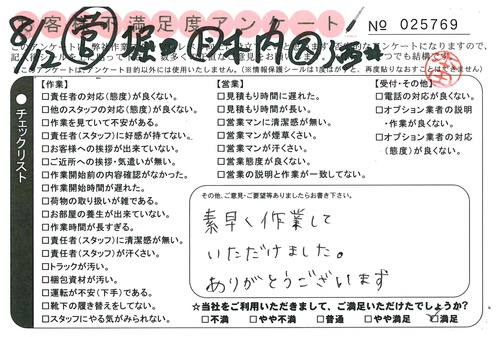 お客様不満足度アンケート
№ 025769
8/2 営
チェックリスト
【作業】
□責任者の対応(態度)が良くない。
□他のスタッフの対応(態度)が良くない。
□作業を見ていて不安がある。
□責任者(スタッフ)に好感が持てない。
□お客様への挨拶が出来ていない。
□ご近所への挨拶・気遣いが無い。
□作業開始前の内容確認がなかった。
□作業開始時間が遅れた。
□荷物の取り扱いが雑である。
□お部屋の養生が出来ていない。
□作業時間が長すぎる。
□責任者(スタッフ)に清潔感が無い。
□責任者(スタッフ)が汗くさい。
□トラックが汚い。
□梱包資材が汚い。
□運転が不安(下手)である。
□靴下の履き替えをしてない。
□スタッフにやる気がみられない。
【営業】
□見積もり時間に遅れた。
□見積もり時間が長い。
□営業マンに清潔感が無い。
□営業マンが煙草くさい。
□営業マンが汗くさい。
□営業態度が良くない。
□営業の説明と作業が一致してない。
【受付・その他】
□電話の対応が良くない。
□オプション業者の説明
・作業が良くない。
□オプション業者の対応
(態度)が良くない。
その他、ご意見・ご要望等ありましたらお書き下さい。
素早く作業して
いただけました。
ありがとうございます
☆当社をご利用いただきまして、ご満足いただけたでしょうか?
□不満 □やや不満 □普通 □やや満足 □満足